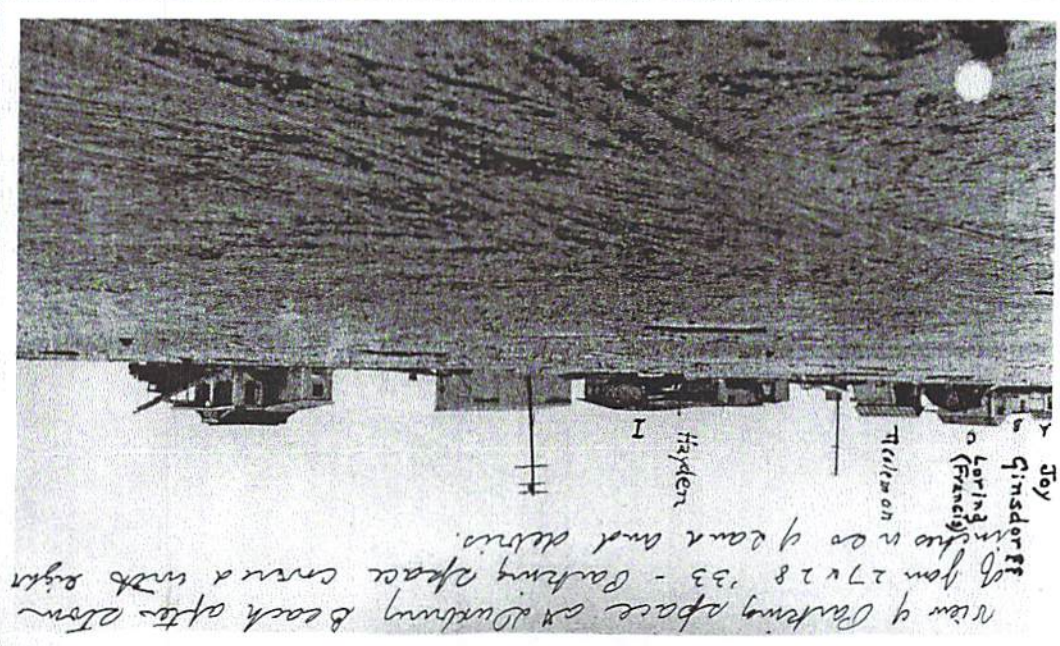 View of Parking space at Duxbury Beach after storm
of Jan 27 & 28 '33 - Parking space covered with eight
inches or so of sand and debris.
Joy
Ginsdorff
Loring
(Francis)
Hayden
I